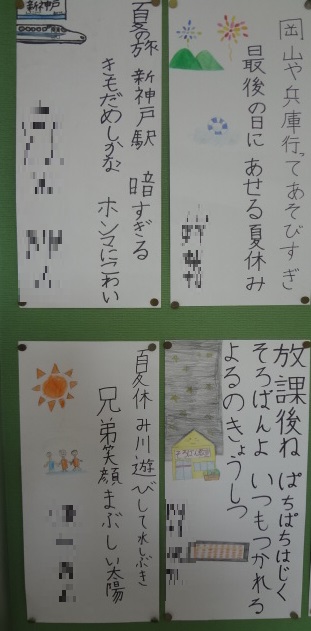 岡山や兵庫行ってあそびすぎ
最後の日に あせる夏休み
夏の旅 新神戸駅 暗すぎる
きもだめしかな ホンマにこわい
新神戸
放課後ね ぱちぱちはじく
そろばんよ いつもつかれる
よるのきょうしつ
夏休み川遊びして水しぶき
兄弟笑顔 まぶしい太陽